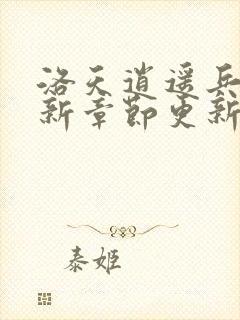 洛天逍遥兵
新章节更新
泰姬